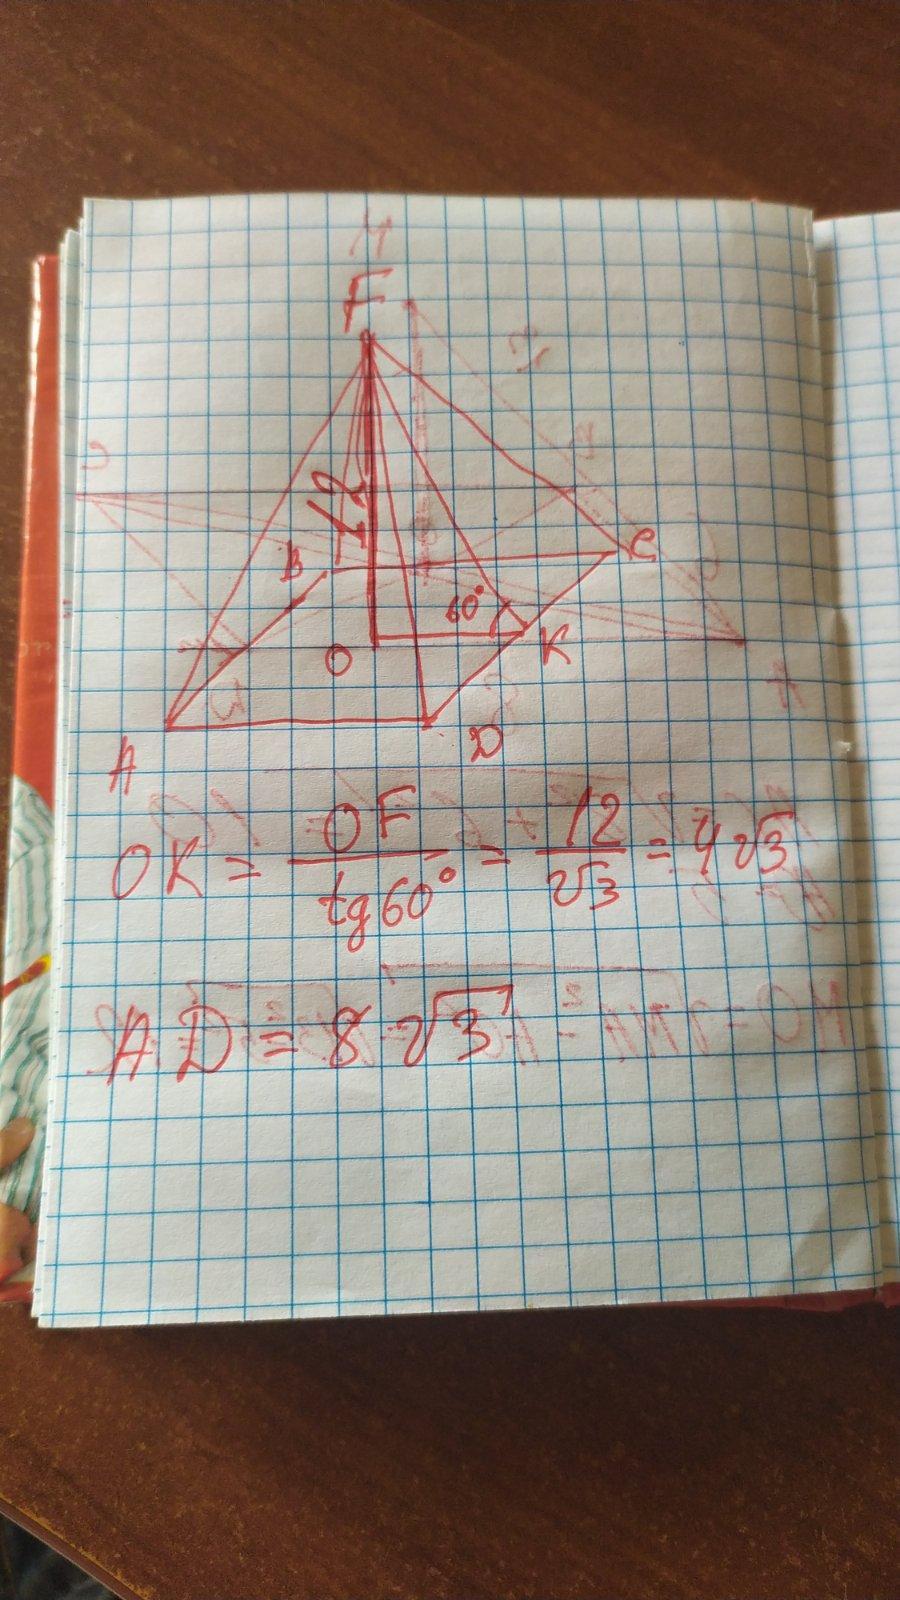 M
F
12
B
C
60°
O
K
A
D
OK = OF / tg60° = 12 / √3 = 4√3
AD = 8√3